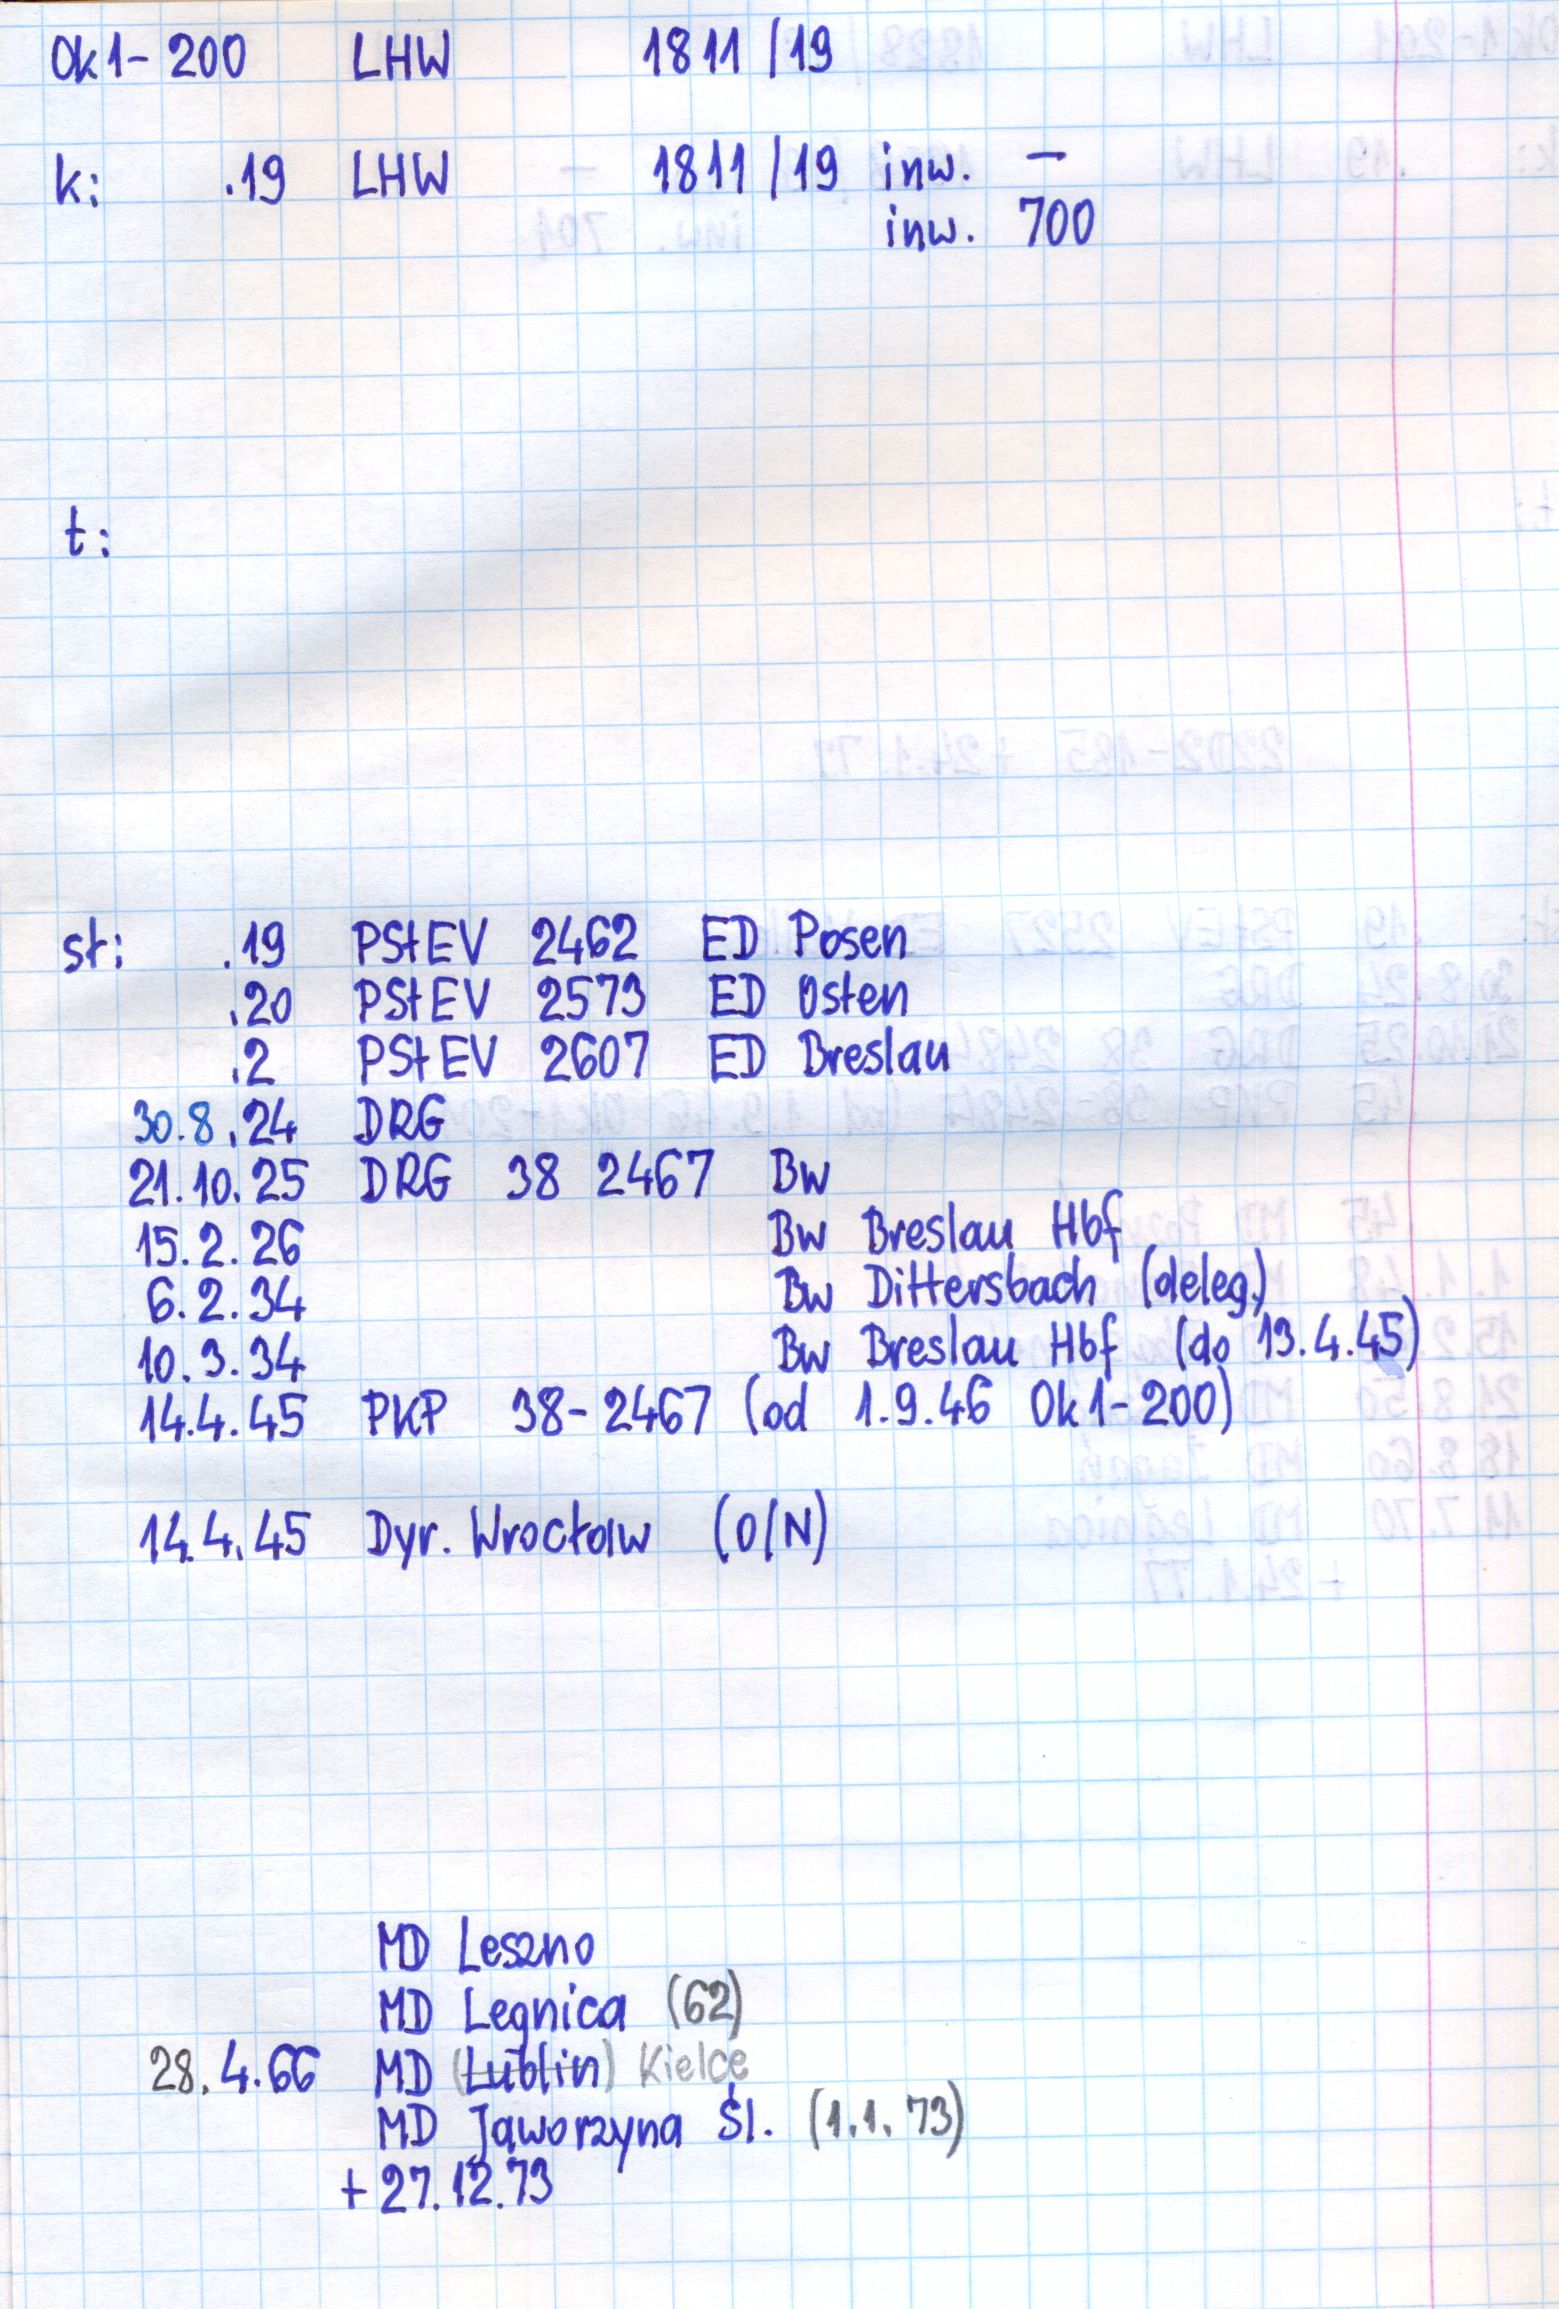 Ok1-200 LHW 1811/19
k: .19 LHW 1811/19 inw. —
inw. 700
t:
st: .19 PStEV 2462 ED Posen
.20 PStEV 2573 ED Osten
.2 PStEV 2607 ED Breslau
30.8.24 DRG
21.10.25 DRG 38 2467 Bw
15.2.26 Bw Breslau Hbf
6.2.34 Bw Dittersbach (deleg.)
10.3.34 Bw Breslau Hbf (do 13.4.45)
14.4.45 PKP 38-2467 (od 1.9.46 Ok1-200)
14.4.45 Dyr. Wrocław (O/N)
MD Leszno
MD Legnica (62)
28.4.66 MD (Lublin) Kielce
MD Jaworzyna Śl. (1.1.73)
+ 27.12.73